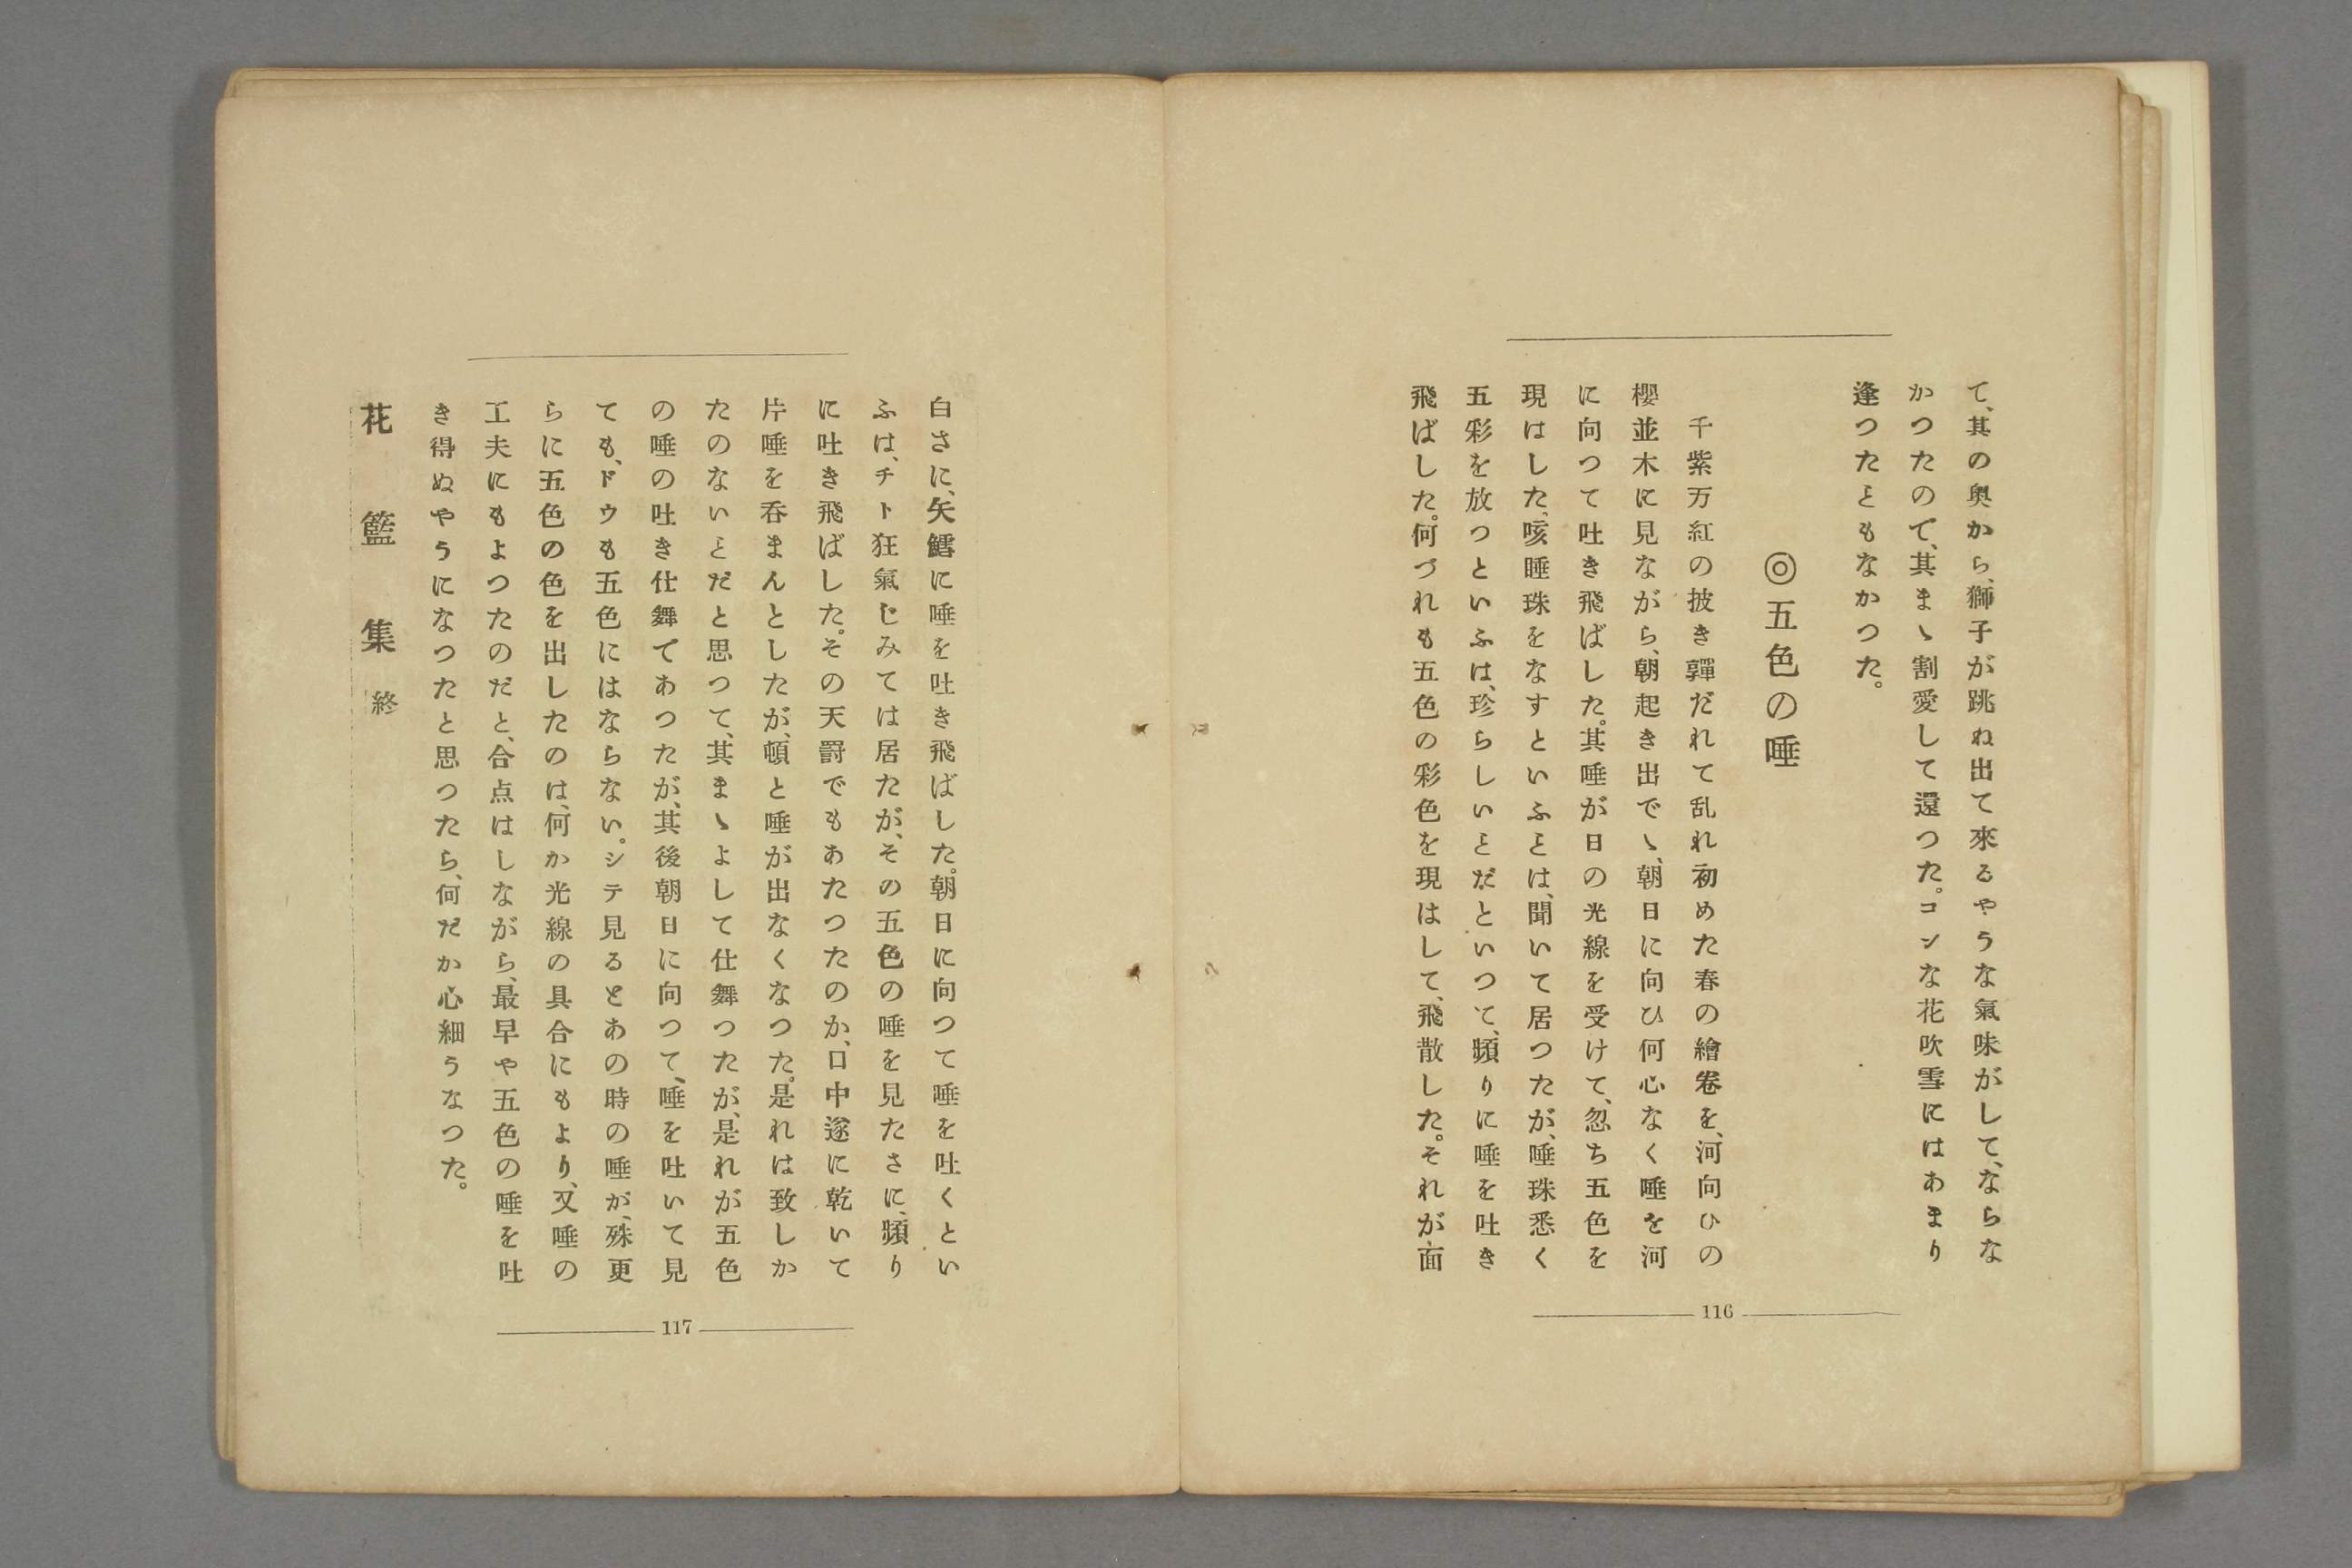 て、其の奥から、獅子が跳ね出て來るやうな氣味がして、ならな
かつたので、其まゝ割愛して還つた。コンな花吹雪にはあまり
逢つたヿもなかつた。
◎五色の唾
千紫万紅の披き嚲だれて乱れ初めた春の繪卷を、河向ひの
櫻並木に見ながら、朝起き出でゝ、朝日に向ひ何心なく唾を河
に向つて吐き飛ばした。其唾が日の光線を受けて、忽ち五色を
現はした、咳唾珠をなすといふヿは、聞いて居つたが、唾珠悉く
五彩を放つといふは、珍らしいヿだといつて、頻りに唾を吐き
飛ばした。何づれも五色の彩色を現はして、飛散した。それが面
116
白さに、矢鱈に唾を吐き飛ばした。朝日に向つて唾を吐くとい
ふは、チト狂氣じみては居たが、その五色の唾を見たさに、頻り
に吐き飛ばした。その天罸でもあたつたのか、口中遂に乾いて
片唾を呑まんとしたが、頓と唾が出なくなつた。是れは致しか
たのないヿだと思つて、其まゝよして仕舞つたが、是れが五色
の唾の吐き仕舞であつたが、其後朝日に向つて、唾を吐いて見
ても、ドウも五色にはならない。シテ見るとあの時の唾が、殊更
らに五色の色を出したのは、何か光線の具合にもより、又唾の
工夫にもよつたのだと、合点はしながら、最早や五色の唾を吐
き得ぬやうになつたと思つたら、何だか心細うなつた。
花籃集 終
117